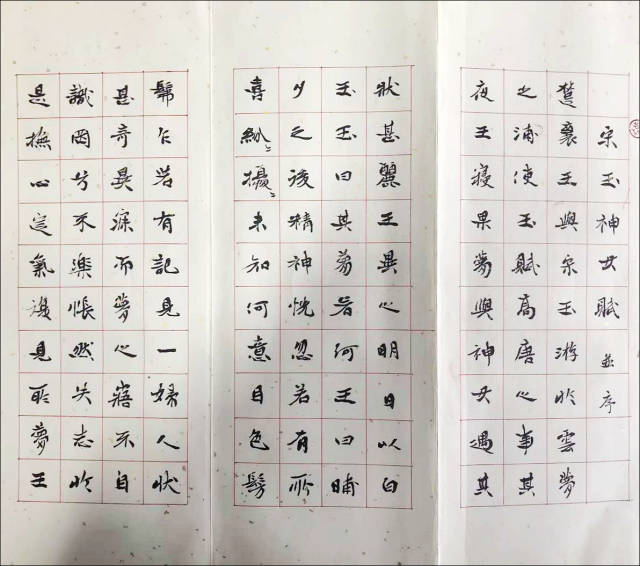 宋玉神女賦並序
楚襄王與宋玉游於雲夢
之浦使玉賦高唐之事其
夜王寢果夢與神女遇其
狀甚麗王異之明日以白
玉玉曰其夢若何王曰晡
夕之後精神怳忽若有所
喜紛〻擾〻未知何意目色髣
髴乍若有記見一婦人狀
甚奇異寐而夢之寤不自
識罔兮不樂悵然失志於
是撫心定氣復見所夢王